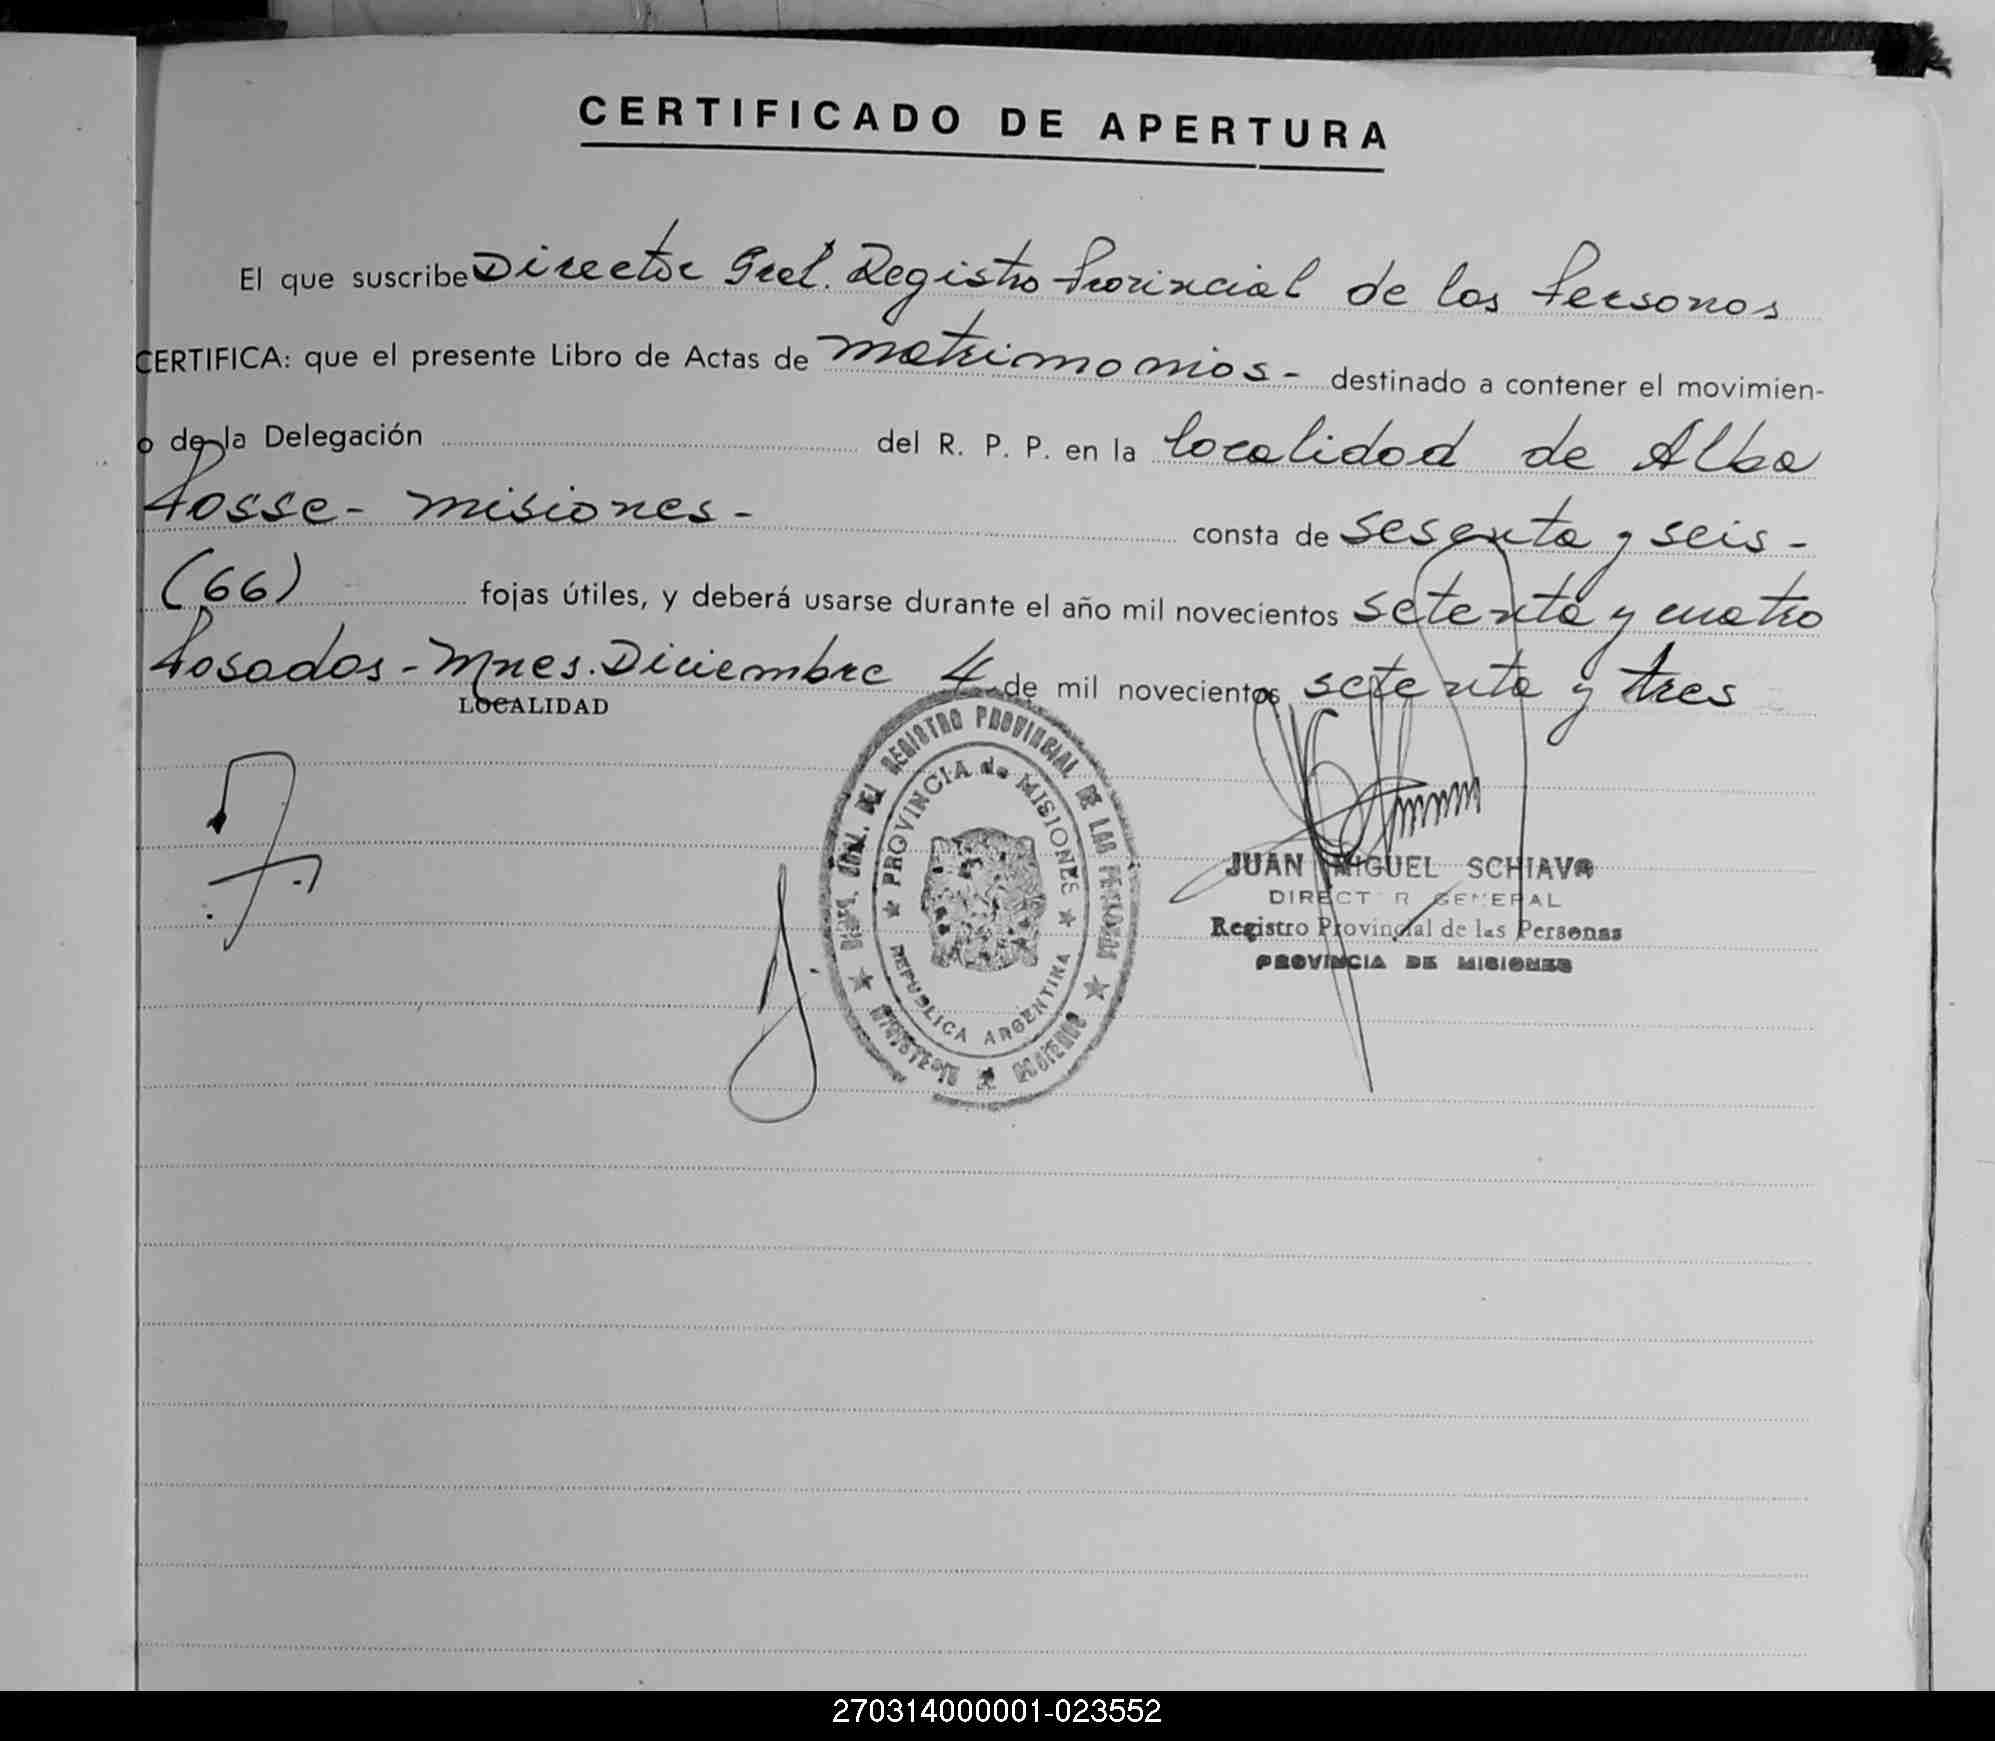 CERTIFICADO DE APERTURA
El que suscribe Director Gral. Registro Provincial de las Personas
CERTIFICA: que el presente Libro de Actas de matrimonios- destinado a contener el movimien-
o de la Delegación del R. P. P. en la localidad de Alba
Posse- misiones- consta de sesenta y seis-
(66) fojas útiles, y deberá usarse durante el año mil novecientos setenta y cuatro
Posadas-Mnes. Diciembre 4 de mil novecientos setenta y tres
LOCALIDAD
DEL REGISTRO PROVINCIAL DE LAS PERSONAS
PROVINCIA de MISIONES
REPUBLICA ARGENTINA
JUAN MIGUEL SCHIAVO
DIRECT R GENERAL
Registro Provincial de las Personas
PROVINCIA DE MISIONES
270314000001-023552